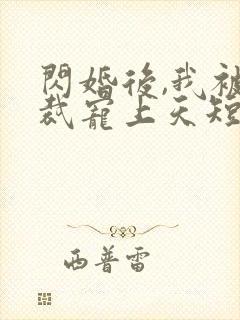 閃婚後,我被
裁寵上天短
西普雷